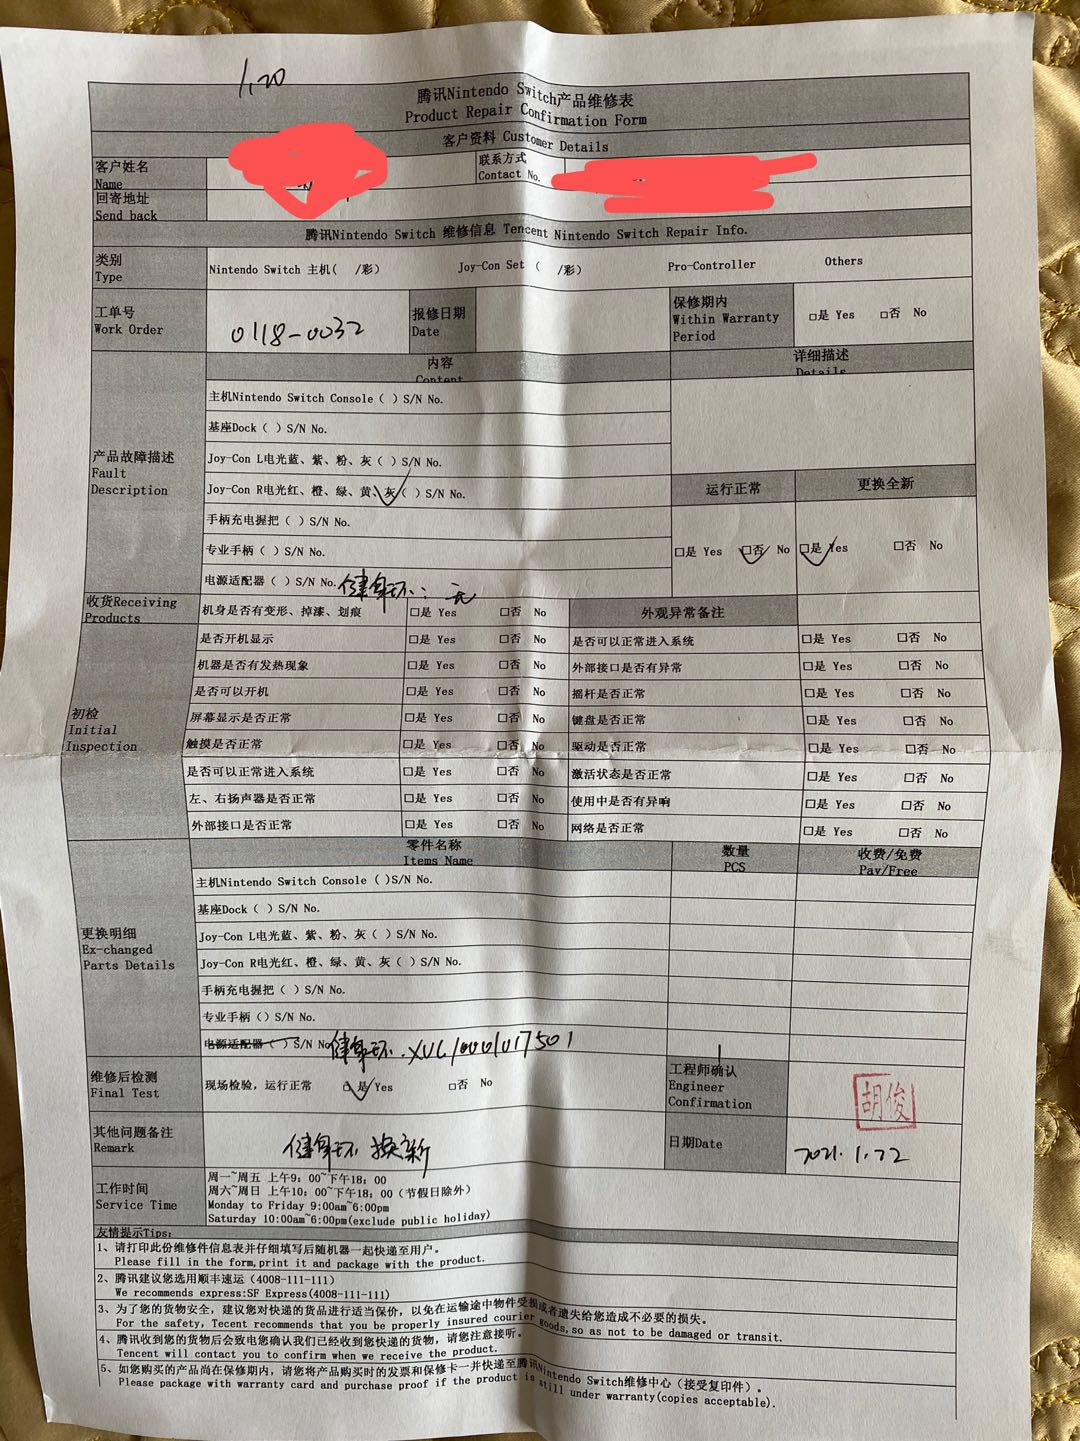 1.20
腾讯Nintendo Switch产品维修表
Product Repair Confirmation Form
客户资料 Customer Details
客户姓名
Name
联系方式
Contact No.
回寄地址
Send back
腾讯Nintendo Switch 维修信息 Tencent Nintendo Switch Repair Info.
类别
Type
Nintendo Switch 主机( /彩) Joy-Con Set ( /彩) Pro-Controller Others
工单号
Work Order
0118-0032
报修日期
Date
保修期内
Within Warranty
Period
□是 Yes □否 No
内容
Content
详细描述
Details
产品故障描述
Fault
Description
主机Nintendo Switch Console ( ) S/N No.
基座Dock ( ) S/N No.
Joy-Con L电光蓝、紫、粉、灰( ) S/N No.
Joy-Con R电光红、橙、绿、黄、灰( ) S/N No.
手柄充电握把 ( ) S/N No.
专业手柄 ( ) S/N No.
电源适配器 ( ) S/N No. 健身环：无
运行正常 更换全新
□是 Yes □否 No □是 Yes □否 No
收货Receiving
Products
机身是否有变形、掉漆、划痕 □是 Yes □否 No 外观异常备注
初检
Initial
Inspection
是否开机显示 □是 Yes □否 No 是否可以正常进入系统 □是 Yes □否 No
机器是否有发热现象 □是 Yes □否 No 外部接口是否有异常 □是 Yes □否 No
是否可以开机 □是 Yes □否 No 摇杆是否正常 □是 Yes □否 No
屏幕显示是否正常 □是 Yes □否 No 键盘是否正常 □是 Yes □否 No
触摸是否正常 □是 Yes □否 No 驱动是否正常 □是 Yes □否 No
是否可以正常进入系统 □是 Yes □否 No 激活状态是否正常 □是 Yes □否 No
左、右扬声器是否正常 □是 Yes □否 No 使用中是否有异响 □是 Yes □否 No
外部接口是否正常 □是 Yes □否 No 网络是否正常 □是 Yes □否 No
零件名称
Items Name
数量
PCS
收费/免费
Pay/Free
更换明细
Ex-changed
Parts Details
主机Nintendo Switch Console ( )S/N No.
基座Dock ( ) S/N No.
Joy-Con L电光蓝、紫、粉、灰( ) S/N No.
Joy-Con R电光红、橙、绿、黄、灰( ) S/N No.
手柄充电握把 ( ) S/N No.
专业手柄 () S/N No.
电源适配器 ( ) S/N No 健身环.XUL10001017501 1
维修后检测
Final Test
现场检验，运行正常 □是 Yes □否 No
工程师确认
Engineer
Confirmation
胡俊
其他问题备注
Remark
健身环换新
日期Date
2021.1.22
工作时间
Service Time
周一~周五 上午9：00~下午18：00
周六~周日 上午10：00~下午18：00 (节假日除外)
Monday to Friday 9:00am~6:00pm
Saturday 10:00am~6:00pm(exclude public holiday)
友情提示Tips:
1、请打印此份维修件信息表并仔细填写后随机器一起快递至用户。
Please fill in the form,print it and package with the product.
2、腾讯建议您选用顺丰速运 (4008-111-111)
We recommends express:SF Express(4008-111-111)
3、为了您的货物安全，建议您对快递的货品进行适当保价，以免在运输途中物件受损或者遗失给您造成不必要的损失。
For the safety, Tecent recommends that you be properly insured courier goods,so as not to be damaged or transit.
4、腾讯收到您的货物后会致电您确认我们已经收到您快递的货物，请您注意接听。
Tencent will contact you to confirm when we receive the product.
5、如您购买的产品尚在保修期内，请您将产品购买时的发票和保修卡一并快递至腾讯Nintendo Switch维修中心 (接受复印件) 。
Please package with warranty card and purchase proof if the product is still under warranty(copies acceptable).